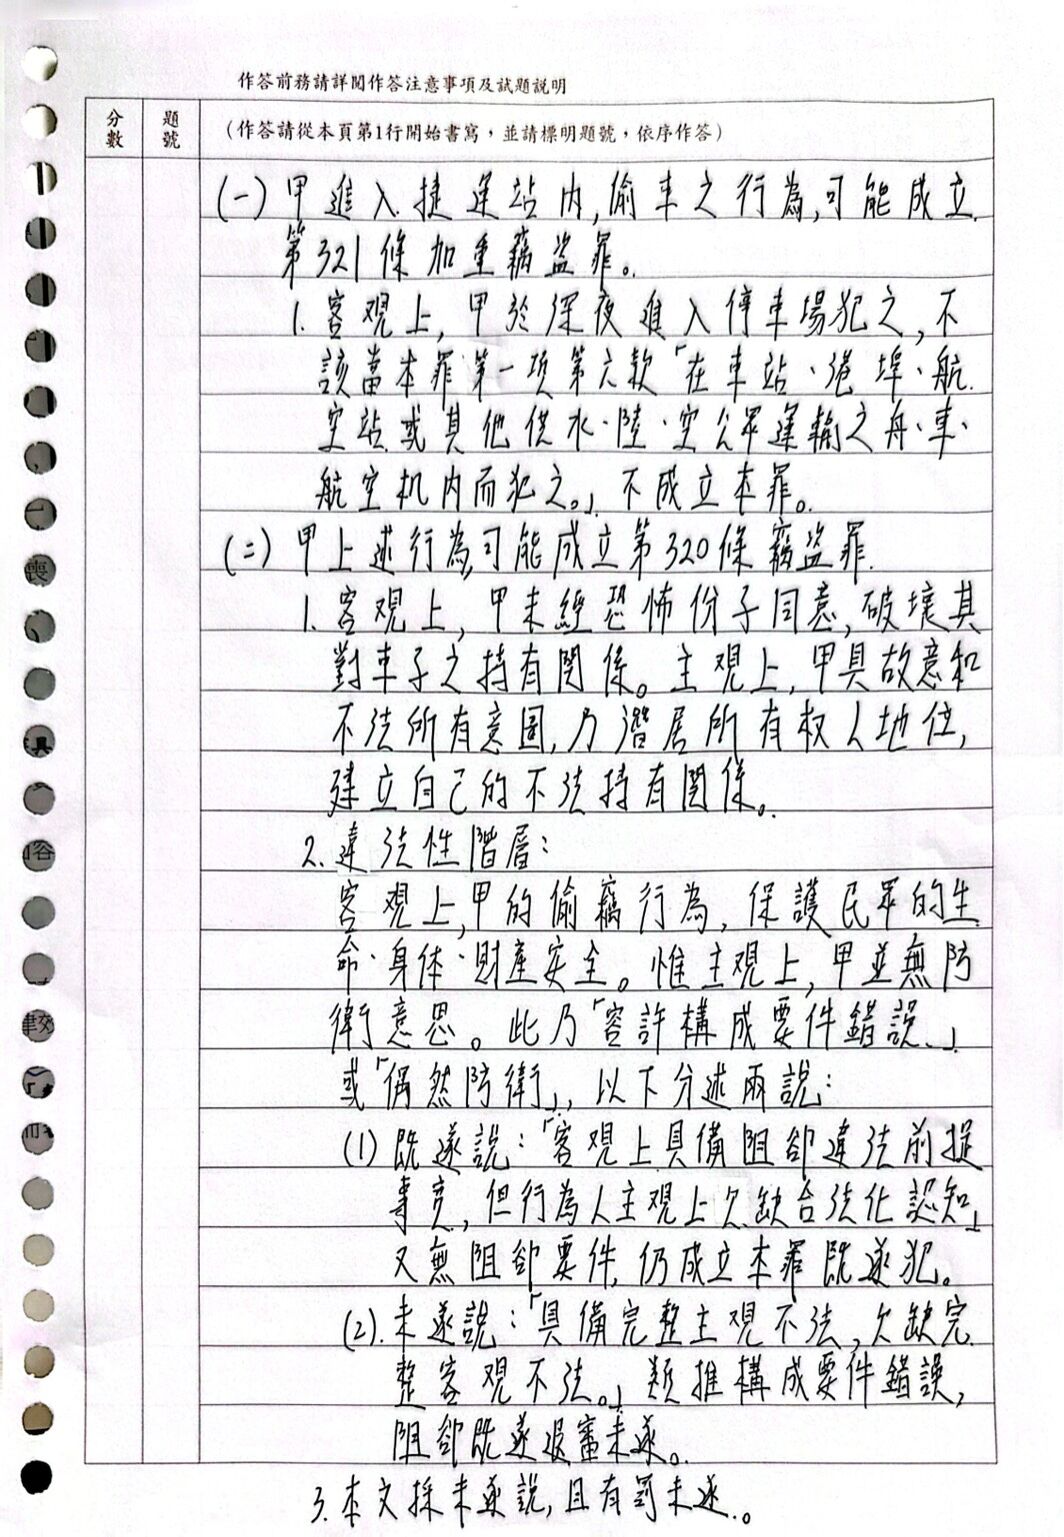 作答前務請詳閱作答注意事項及試題說明
分數
題號
(作答請從本頁第1行開始書寫，並請標明題號，依序作答)
(一) 甲進入捷運站內,偷車之行為,可能成立
第321條加重竊盜罪。
1. 客觀上, 甲於深夜進入停車場犯之, 不
該當本罪第一項第六款「在車站、港埠、航
空站或其他供水、陸、空公眾運輸之舟、車、
航空机內而犯之。」不成立本罪。
(二) 甲上述行為,可能成立第320條竊盜罪.
1. 客觀上, 甲未經恐怖份子同意, 破壞其
對車子之持有関係。主觀上, 甲具故意和
不法所有意圖, 乃潛居所有权人地位,
建立自己的不法持有関係。
2. 違法性階層:
客觀上, 甲的偷竊行為, 保護民眾的生
命、身体、財產安全。惟主觀上, 甲並無防
衛意思。此乃「容許構成要件錯誤」
或「偶然防衛」, 以下分述兩說:
(1) 既遂說:「客觀上具備阻卻違法前提
事實, 但行為人主觀上欠缺合法化認知」
又無阻卻要件, 仍成立本罪既遂犯。
(2). 未遂說:「具備完整主觀不法, 欠缺完
整客觀不法。」類推構成要件錯誤,
阻卻既遂退審未遂。
3. 本文採未遂說, 且有罰未遂。